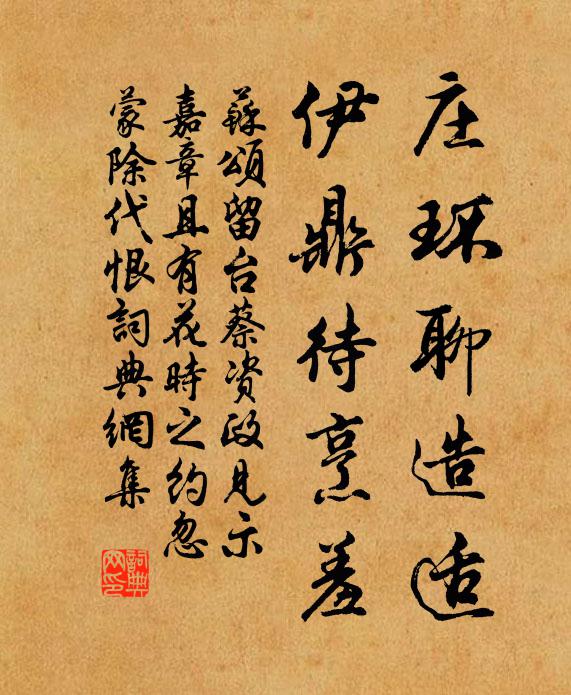 庄环聊造适
伊鼎待烹羞
蘇頌留台蔡资政见示
嘉章且有花時之约忽
蒙除代恨詞典網集
詞典网印